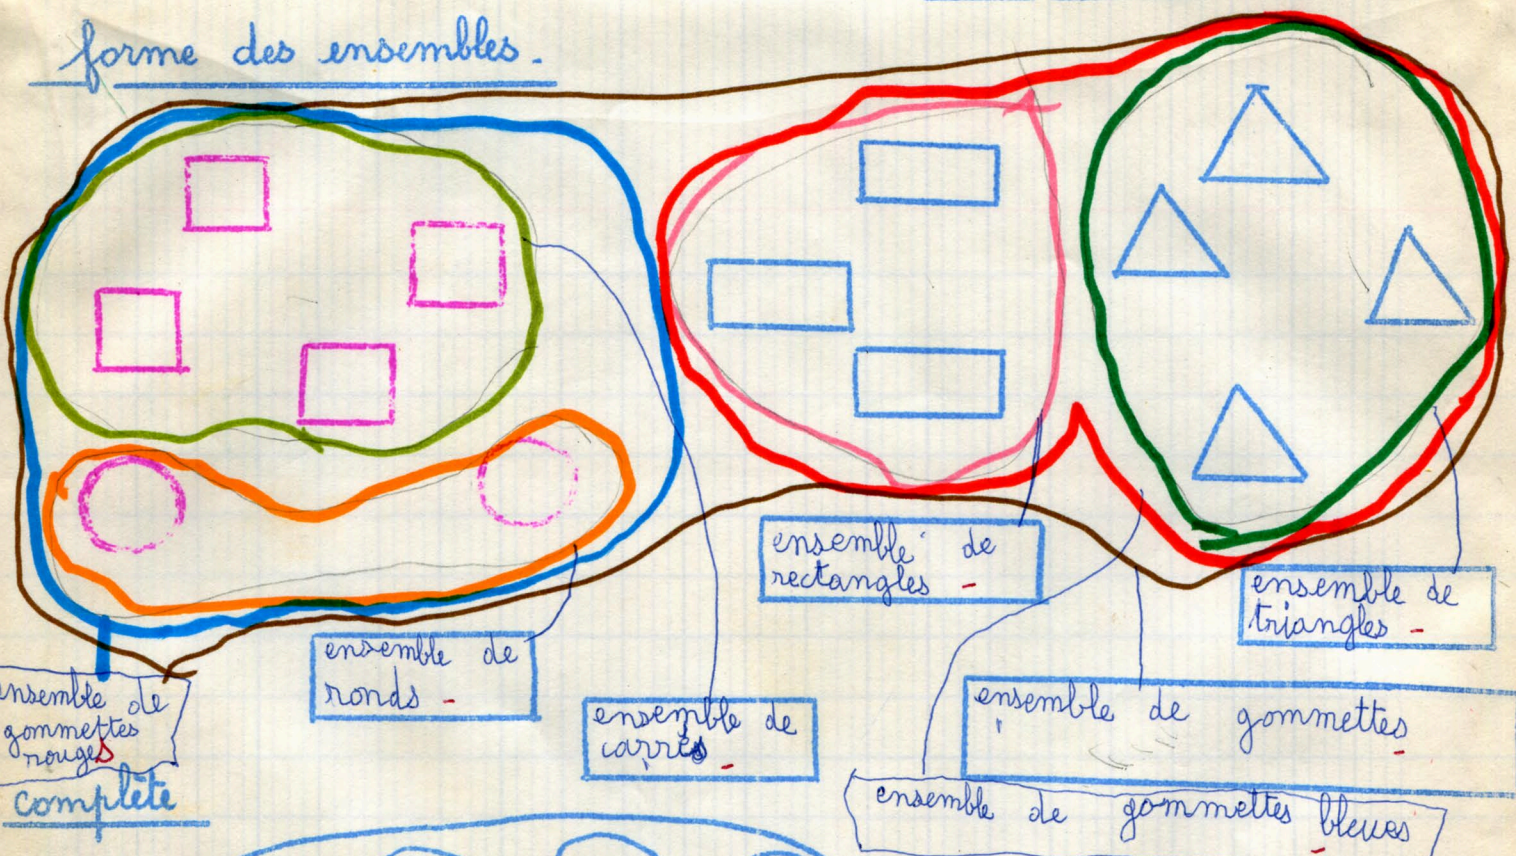 forme des ensembles.
ensemble de
rectangles
ensemble de
triangles
ensemble de
ronds
ensemble de
gommettes
rouges
ensemble de
carrés
ensemble de gommettes
ensemble de gommettes bleues
complète